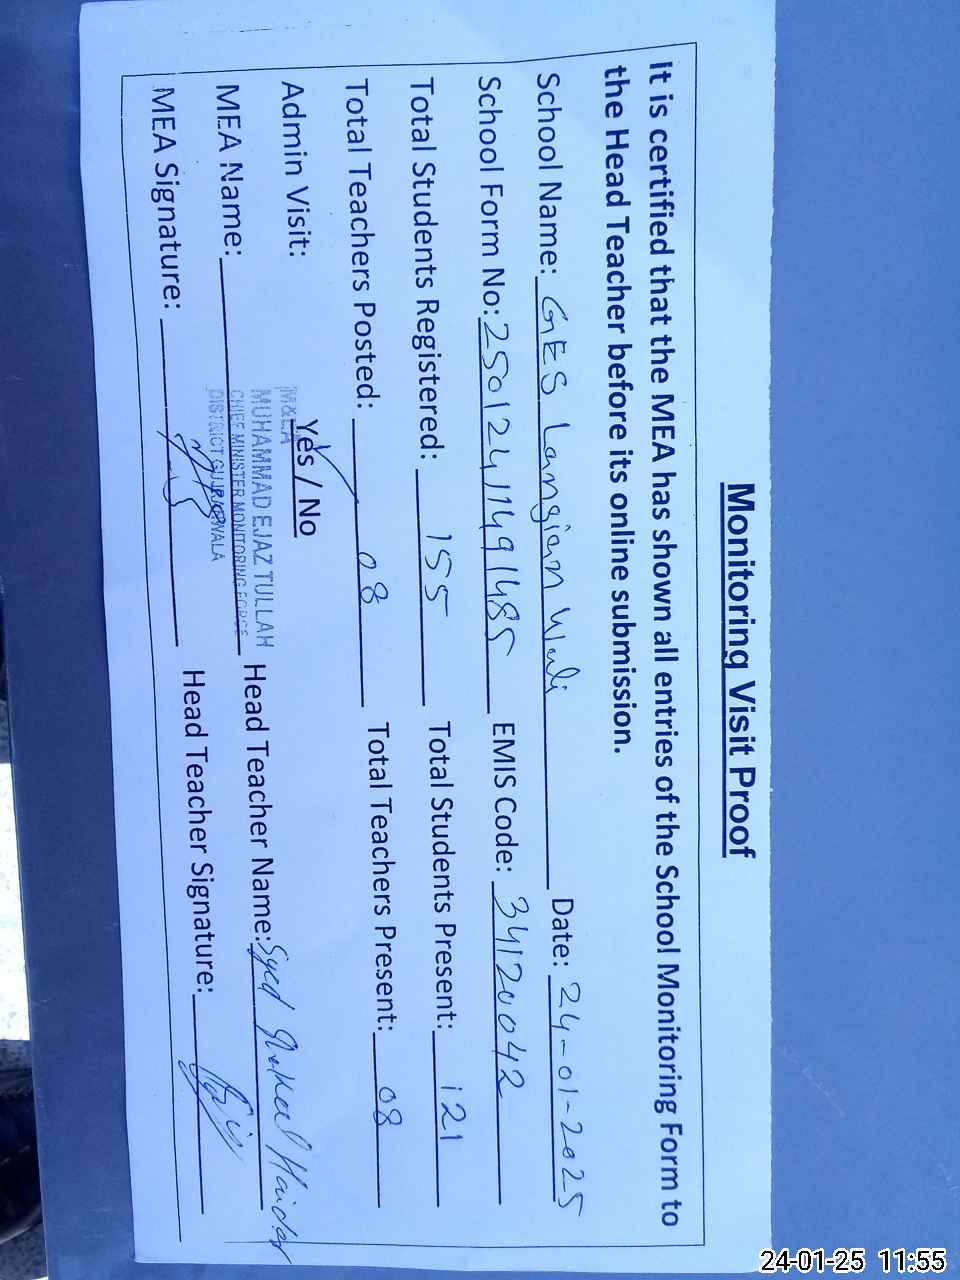 Monitoring Visit Proof
It is certified that the MEA has shown all entries of the School Monitoring Form to
the Head Teacher before its online submission.
School Name: GES Langian Wali Date: 24-01-2025
School Form No: 25012411491485 EMIS Code: 34120042
Total Students Registered: 155 Total Students Present: 121
Total Teachers Posted: 08 Total Teachers Present: 08
Admin Visit: Yes / No
M&EA
MUHAMMAD EJAZ TULLAH
CHIEF MINISTER MONITORING FORCE
DISTRICT GUJRANWALA
MEA Name: Head Teacher Name: Syed Haider
MEA Signature: Head Teacher Signature:
24-01-25 11:55